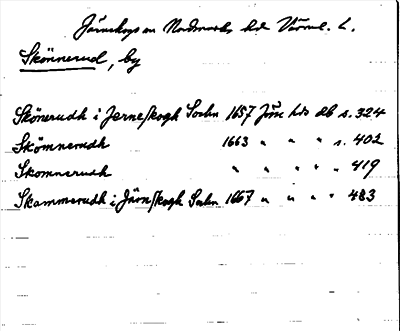 Järnskogs sn Nordmarks hd Värml. l.
Skönnerud, by
Skönerudh i Jerneskogh Sochn 1657 Jöss hds db s. 324
Skömnerudh 1663 " " " s. 402
Skomnerudh " " " " 419
Skammerudh i Järnskogh Sochn 1667 " " " " 483